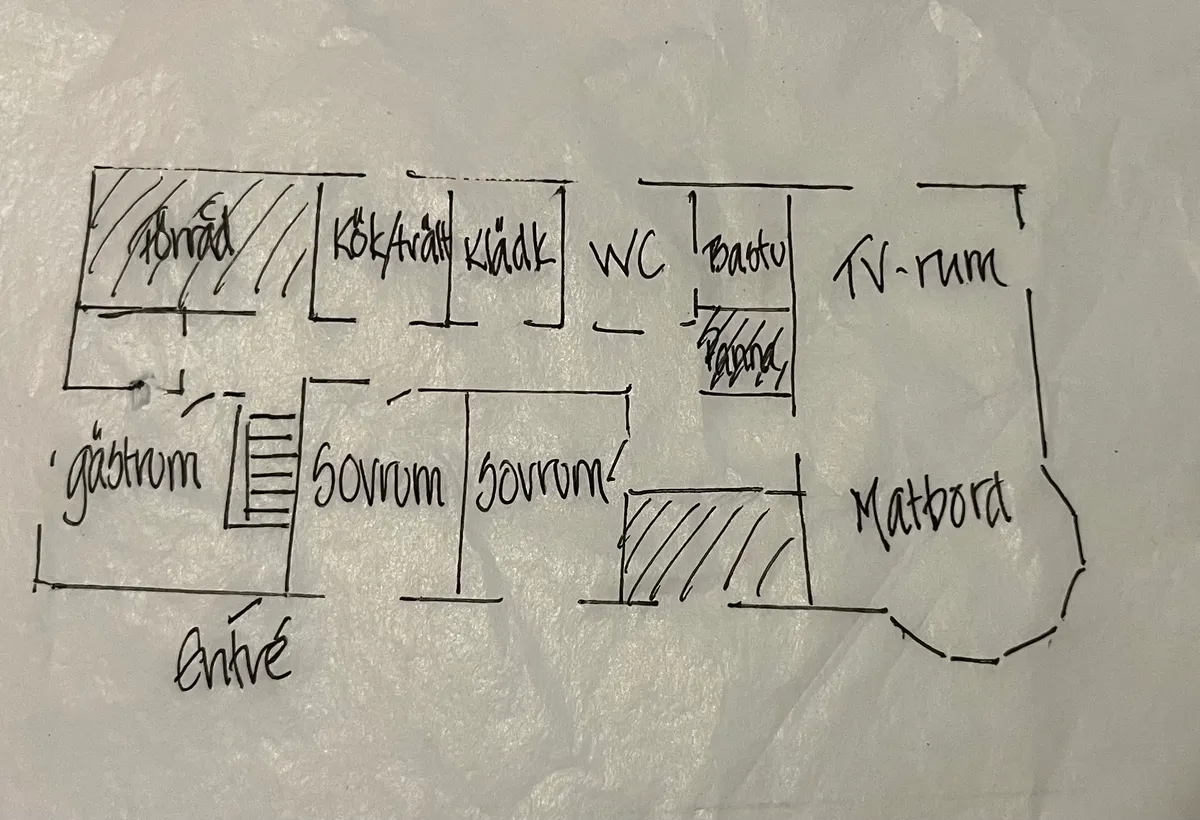 Förråd
Kök/tvätt
Klädk
WC
Bastu
TV-rum
Panna
gästrum
Sovrum
Sovrum
Matbord
Entré